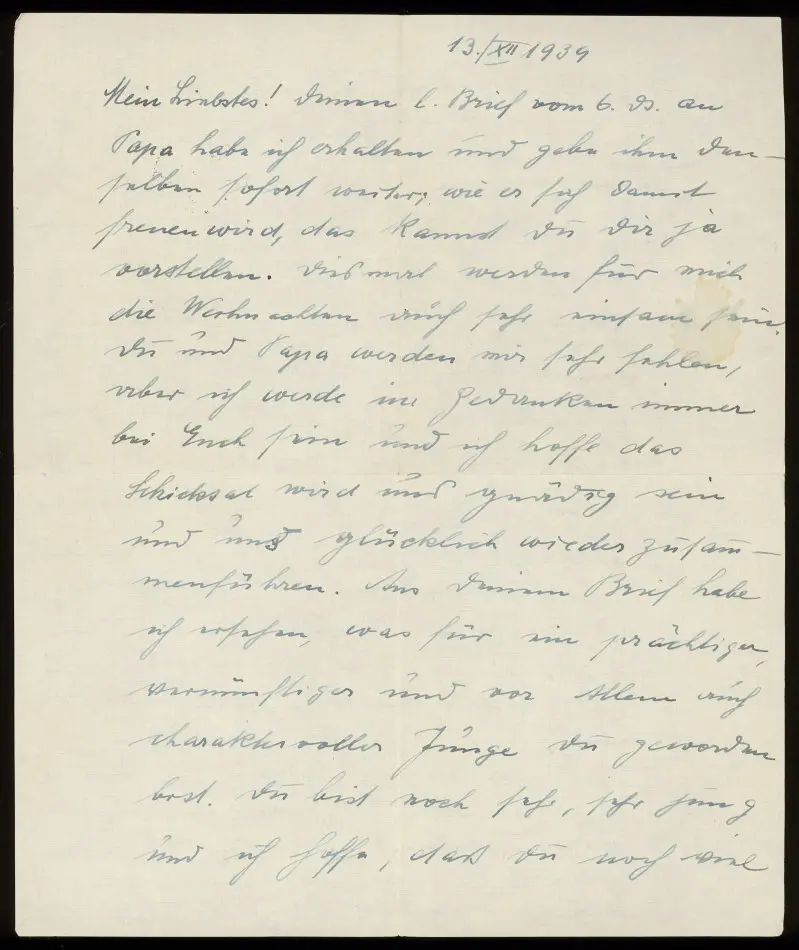 13./XII 1939
Mein Liebstes! Deinen l. Brief vom 6. ds. an
Papa habe ich erhalten und gebe ihm den-
selben sofort weiter; wie er sich damit
freuen wird, das kannst Du Dir ja
vorstellen. Diesmal werden für mich
die Weihnachten auch sehr einsam sein.
Du und Papa werden mir sehr fehlen,
aber ich werde in Gedanken immer
bei Euch sein und ich hoffe das
Schicksal wird uns gnädig sein
und uns glücklich wieder zusam-
menführen. Aus Deinem Brief habe
ich ersehen, was für ein prächtiger,
vernünftiger und vor Allem auch
charaktervoller Junge Du geworden
bist. Du bist noch sehr, sehr jung
und ich hoffe, daß Du noch viel